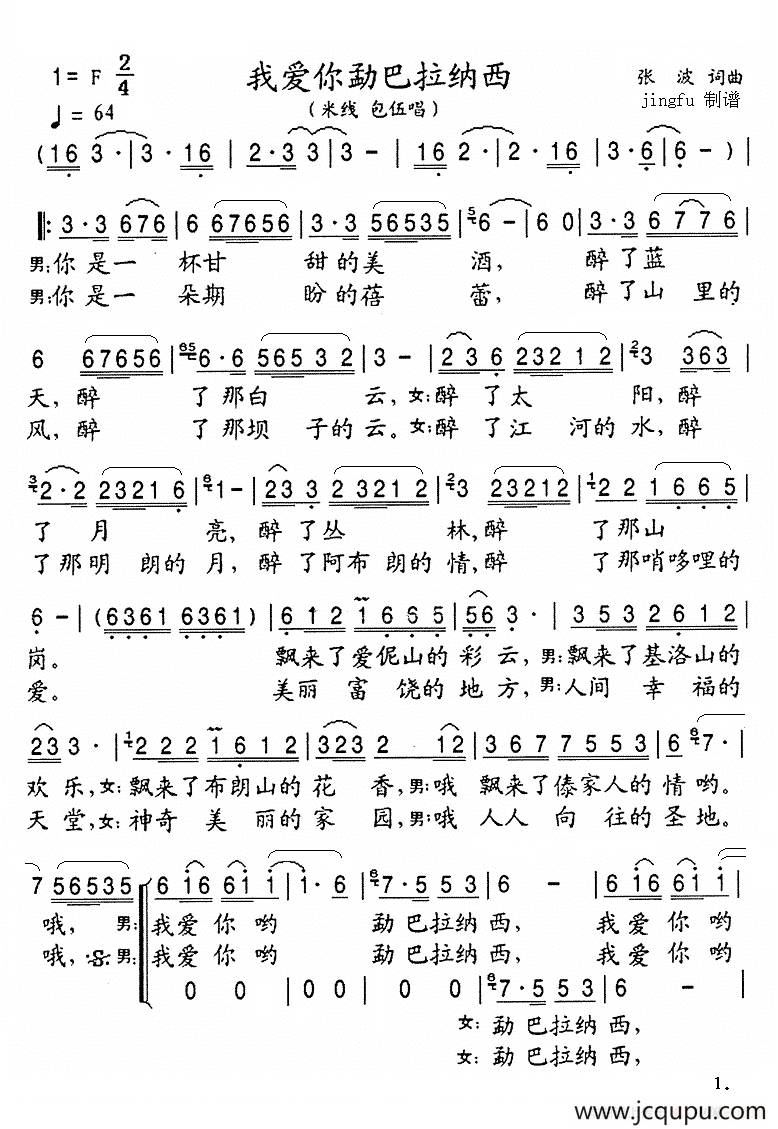 1= F 2/4 我爱你勐巴拉纳西 张 波 词曲
♩= 64 (米线 包伍唱) jingfu 制谱
(16 3·|3·16|2·33|3 -|16 2·|2·16|3·6|6 -)|
‖:3·3 676|6 67656|3·3 56535|6 -|6 0|3·3 6776|
男:你是一 杯甘 甜的美 酒, 醉了蓝
男:你是一 朵期 盼的蓓 蕾, 醉了山 里的
6 67656|6·6 56532|3 -|236 23212|3 363|
天,醉 了那白 云,女:醉 了太 阳,醉
风,醉 了那坝 子的云。女:醉 了江 河的水,醉
2·2 23216|1 -|233 23212|3 23212|22 1665|
了 月 亮,醉了丛 林,醉 了那山
了那明 朗的月,醉了阿布朗的情,醉 了那哨哆哩的
6 -|(6361 6361)|612 1665|56 3·|353 2612|
岗。 飘来了爱伲山的彩云,男:飘来了基洛山的
爱。 美丽富饶的地方,男:人间幸福的
233·|222 1612|323 2 12|367 7553|7·
欢乐,女:飘来了布朗山的花 香,男:哦 飘来了傣家人的情哟。
天堂,女:神奇美丽的家 园,男:哦 人人向往的圣地。
7 56535|616 611|1·6|7·5 553|6 -|616 611|
哦, 男:我爱你哟 勐巴拉纳西, 我爱你哟
哦, 男:我爱你哟 勐巴拉纳西, 我爱你哟
0 0|0 0|0 0|7·5 553|6 -|
女:勐巴拉纳西,
女:勐巴拉纳西,
1.
www.jcqupu.com